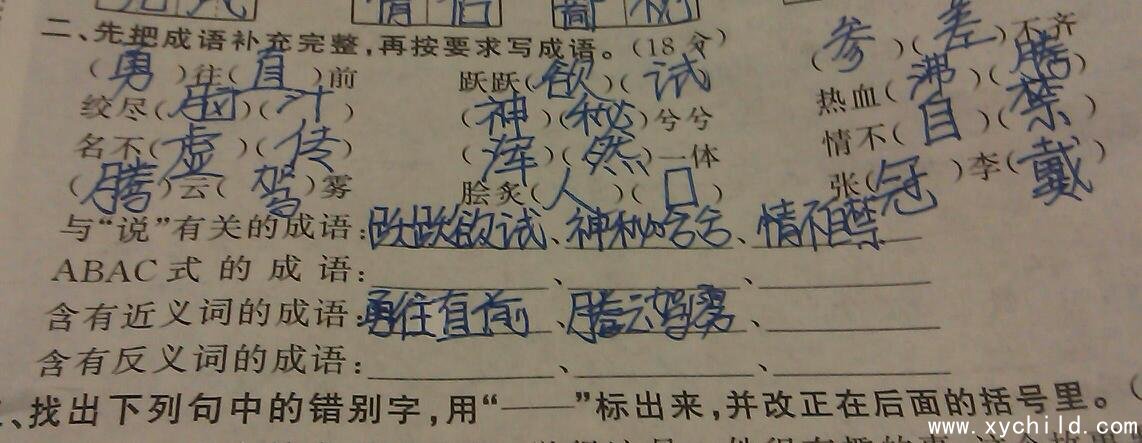 情
二、先把成语补充完整,再按要求写成语。(18分)
(勇)往(直)前 跃跃(欲)(试) (参)(差)不齐
绞尽(脑)(汁) (神)(秘)兮兮 热血(沸)(腾)
名不(虚)(传) (浑)(然)一体 情不(自)(禁)
(腾)云(驾)雾 脍炙(人)(口) 张(冠)李(戴)
与“说”有关的成语:跃跃欲试、神秘兮兮、情不自禁
ABAC式的成语:、、
含有近义词的成语:勇往直前、腾云驾雾、
含有反义词的成语:、、
、找出下列句中的错别字,用“——”标出来,并改正在后面的括号里。(
www.xychild.com